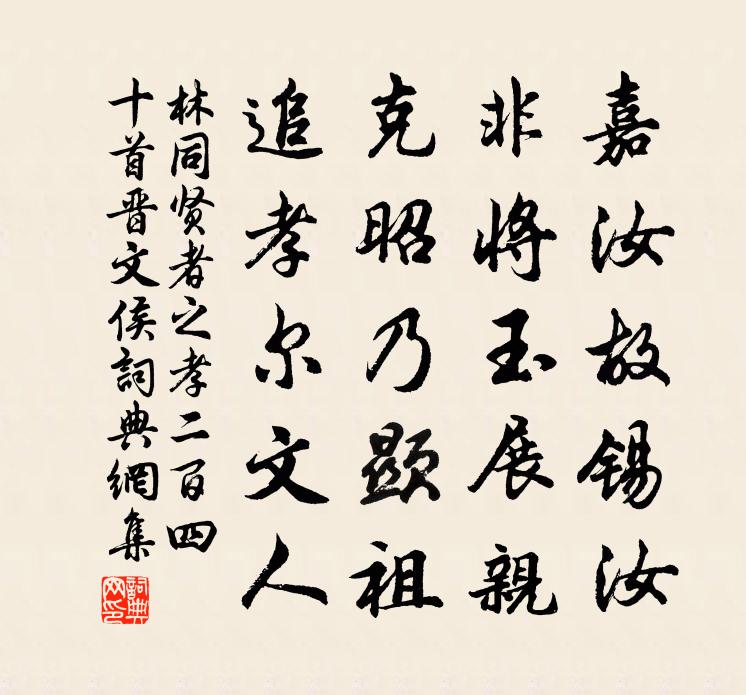 嘉汝故锡汝
非将玉展親
克昭乃顕祖
追孝尔文人
林同贤者之孝二百四
十首晋文侯詞典網集
詞典网印